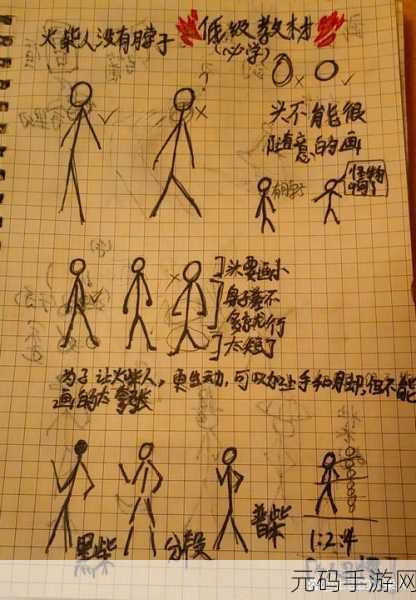 火柴人没有脖子
低级教材
(必学)
头不能很
随意的画
有脖子
怪物
啊
头要画小
身子差不
多就行
太短了
为了让火柴人，更生动，可以加上手和脚，但不能
画的太夸张
黑柴
分段
普柴
1:2:4
元码手游网